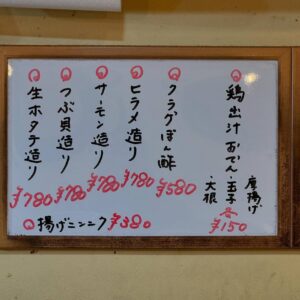 鶏出汁おでん
・玉子
・大根
唐揚げ
各¥150
クラゲぽん酢
¥580
ヒラメ造り
¥780
サーモン造り
¥780
つぶ貝造り
¥780
生ホタテ造り
¥780
揚げニンニク ¥380